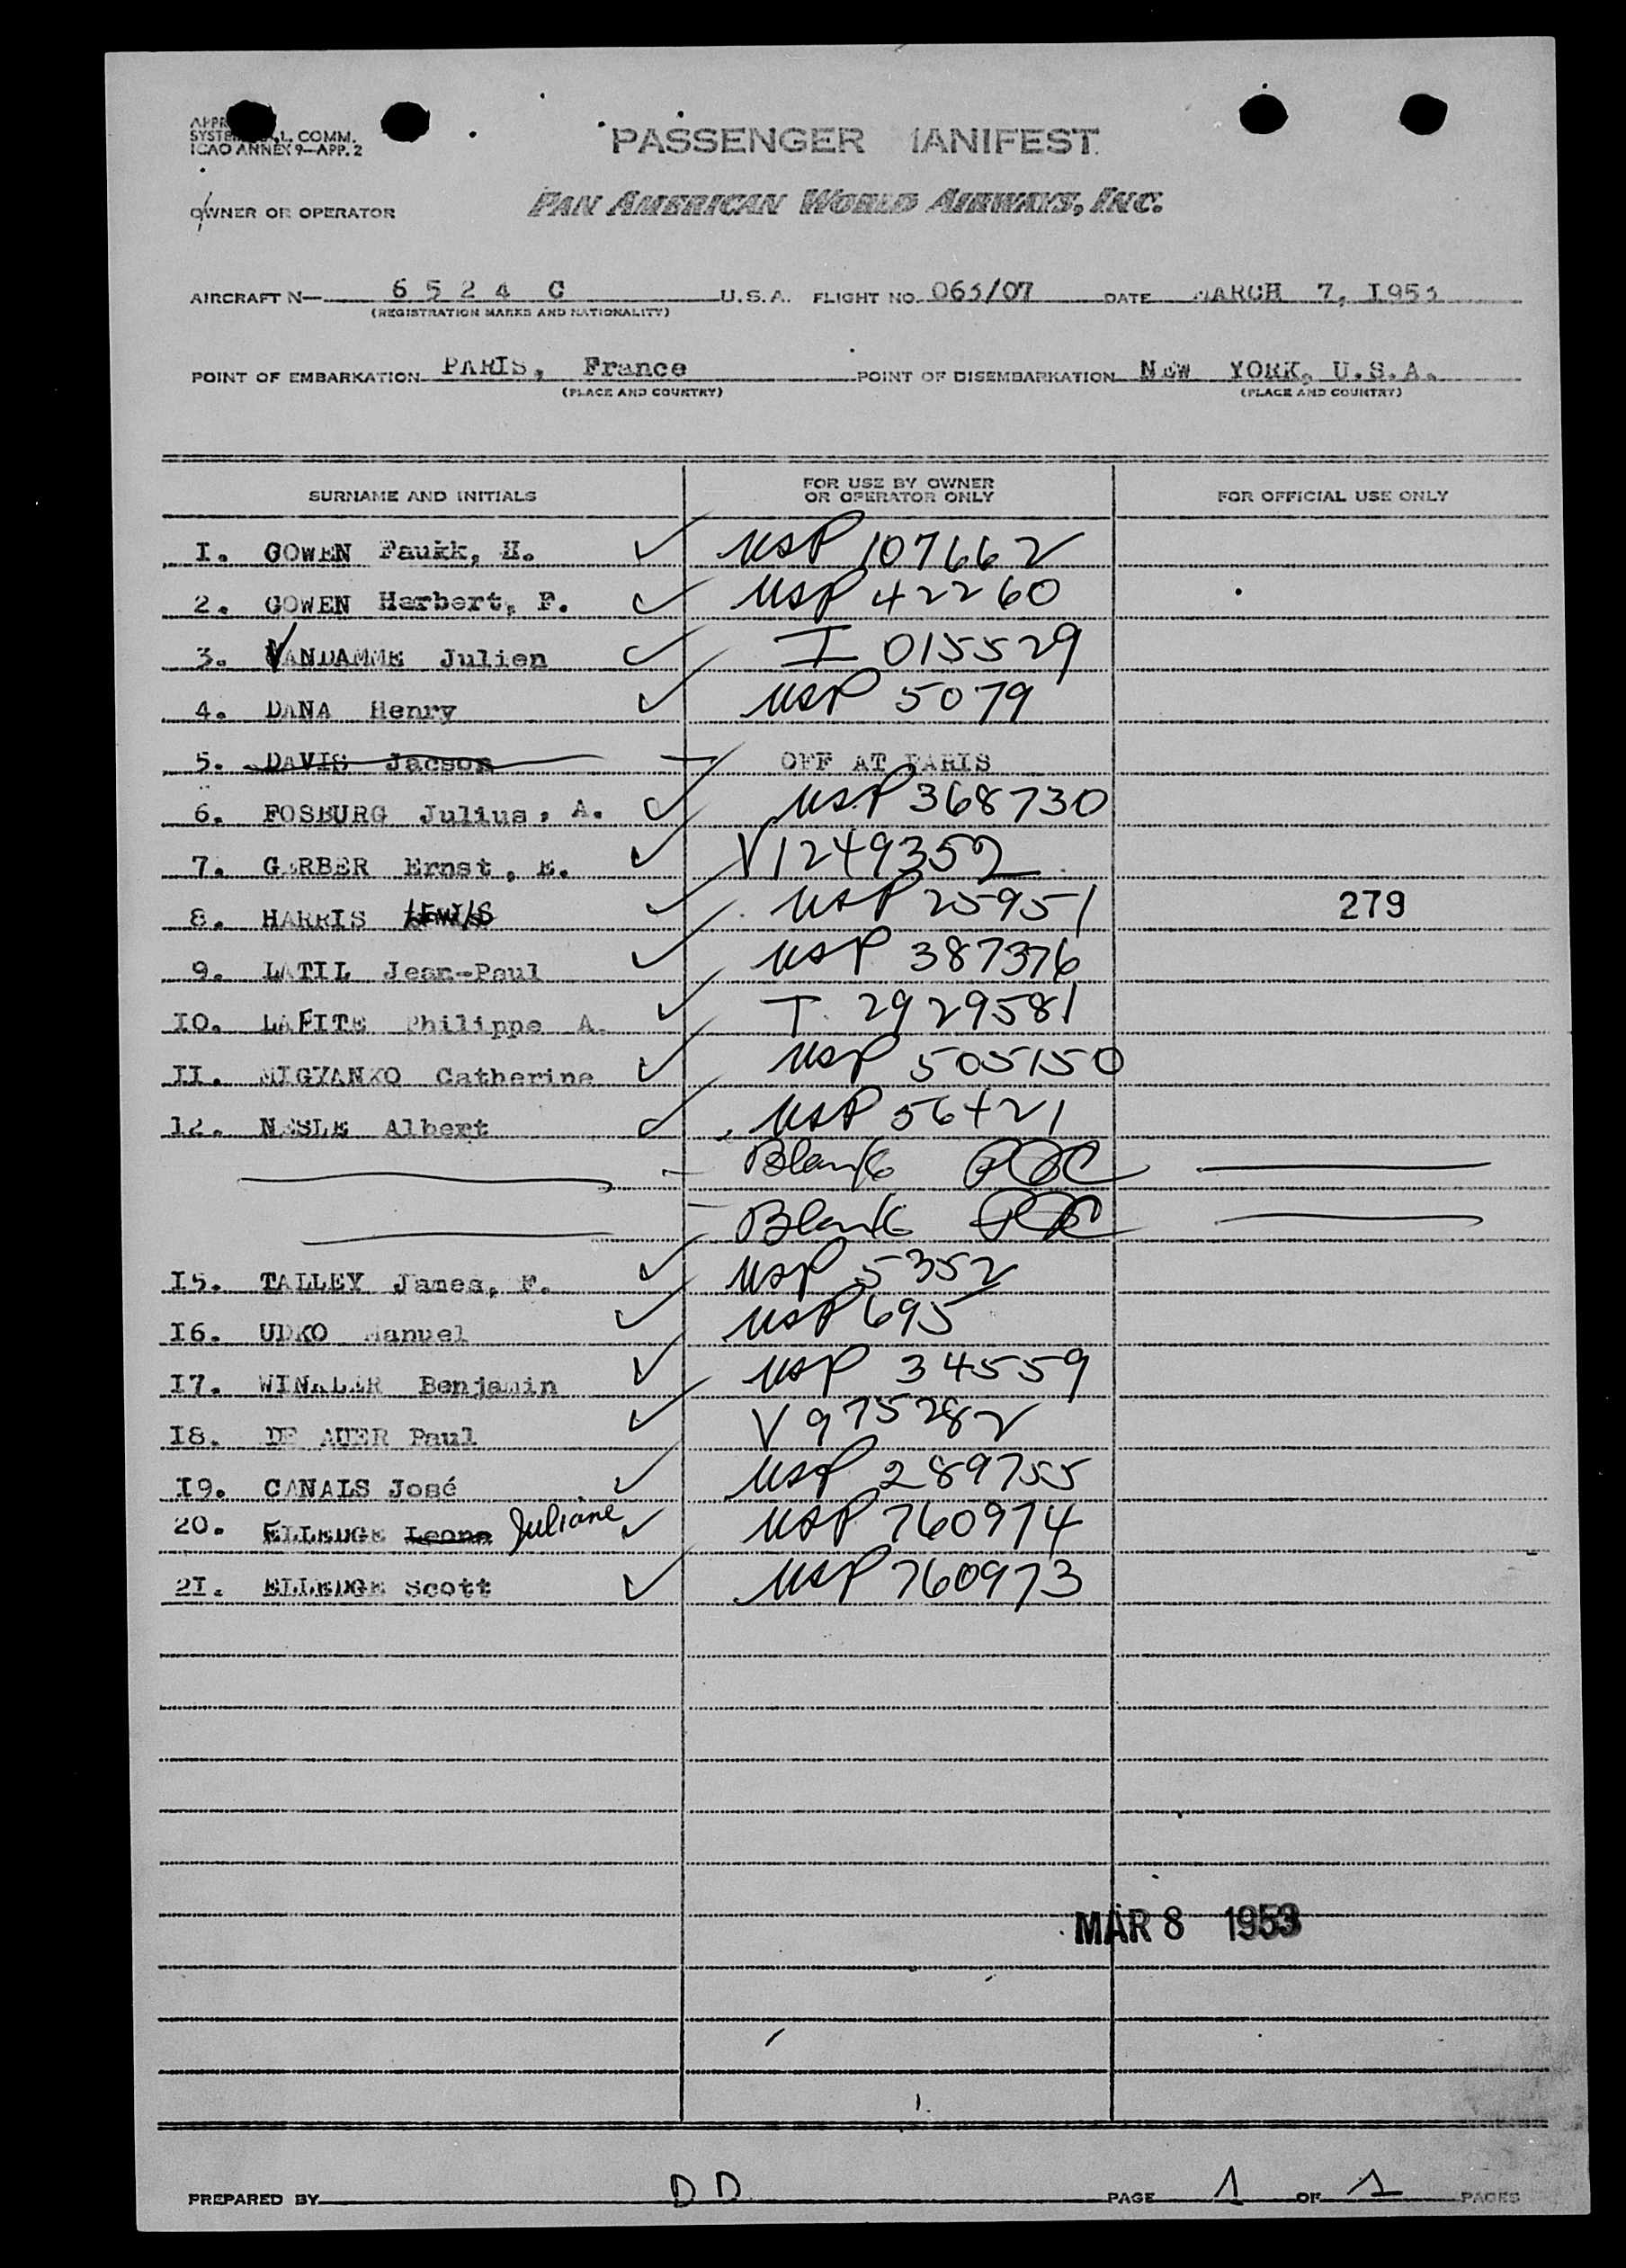 APPR
SYSTE L. COMM.
ICAO ANNEX 9-APP. 2
PASSENGER MANIFEST
OWNER OR OPERATOR PAN AMERICAN WORLD AIRWAYS, INC.
AIRCRAFT N— 6 5 2 4 C U.S.A. FLIGHT NO. 063/07 DATE MARCH 7, I953
(REGISTRATION MARKS AND NATIONALITY)
POINT OF EMBARKATION PARIS, France POINT OF DISEMBARKATION NEW YORK, U.S.A.
(PLACE AND COUNTRY) (PLACE AND COUNTRY)
SURNAME AND INITIALS FOR USE BY OWNER OR OPERATOR ONLY FOR OFFICIAL USE ONLY
I. GOWEN H. ✓ USP 107662
2. GOWEN Herbert, F. ✓ USP 42260
3. VANDAMME Julien ✓ I 015529
4. DANA Henry ✓ USP 5079
5. DAVIS Jacson — OFF AT PARIS
6. FOSBURG Julius, A. ✓ USP 368730
7. GERBER Ernst, E. ✓ V1249352
8. HARRIS LEWIS ✓ USP 25951 279
9. LATIL Jean-Paul ✓ USP 387376
IO. LAFITE Philippe A. ✓ T. 2929581
II. MIGYANKO Catherine ✓ USP 505150
12. NESLE Albert ✓ USP 56421
— Blank
— Blank
I5. TALLEY James, F. ✓ USP 5352
I6. UDKO Manuel ✓ USP 695
I7. WINKLER Benjamin ✓ USP 34559
I8. DE AUER Paul ✓ V 975282
I9. CANALS José ✓ USP 289755
20. ELLEDGE Leona Juliane ✓ USP 760974
2I. ELLEDGE Scott ✓ USP 760973
MAR 8 1953
PREPARED BY DD PAGE 1 OF 1 PAGES